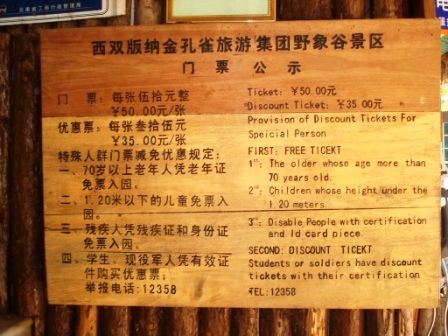 西双版纳金孔雀旅游集团野象谷景区
门票公示
门　票：每张伍拾元整
￥50.00元/张
优惠票：每张叁拾伍元
￥35.00元/张
特殊人群门票减免优惠规定：
一、70岁以上老年人凭老年证
免票入园。
二、1.20米以下的儿童免票入
园。
三、残疾人凭残疾证和身份证
免票入园。
四、学生、现役军人凭有效证
件购买优惠票。
举报电话：12358
Ticket: ￥50.00元
Discount Ticket: ￥35.00元
Provision of Discount Tickets For
Speicial Person
FIRST: FREE TICEKT
1st: The older whose age more than
70 years old.
2nd: Children whose height under the
1.20 meters.
3rd: Disable People with certification
and Id card piece.
SECOND: DISCOUNT TICEKT
Students or soldiers have discount
tickets with their certification
TEL:12358